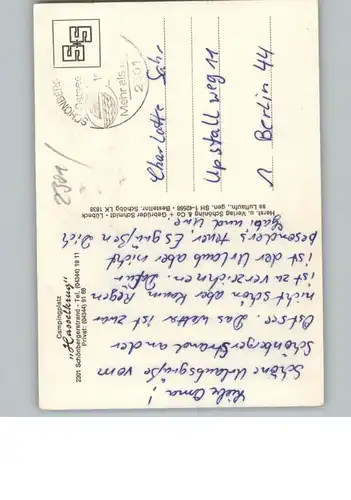 Campingplatz
„Hasselkrug"
2301 Schönbergerstrand - Tel. (04344) 19 11
Privat: (04344) 91 86
Liebe Oma!
Schöne Urlaubsgrüße vom
Schönberger Strand an der
Ostsee. Das Wetter ist zwar
nicht schön aber kaum Regen
ist zu verzeichnen. Dafür
ist der Urlaub aber nicht
besonders teuer. Es grüßen Dich
Gabi und Uwe.
Herst. u. Verlag Schöning & Co + Gebrüder Schmidt - Lübeck
ss Luftaufn., gen. SH 1-42568 - Bestellnr. Schöbg LK 1838
SCHÖNBERG
Ostsee
Mehr als
2301
2301/
Charlotte
Upstallweg 11
1 Berlin 44